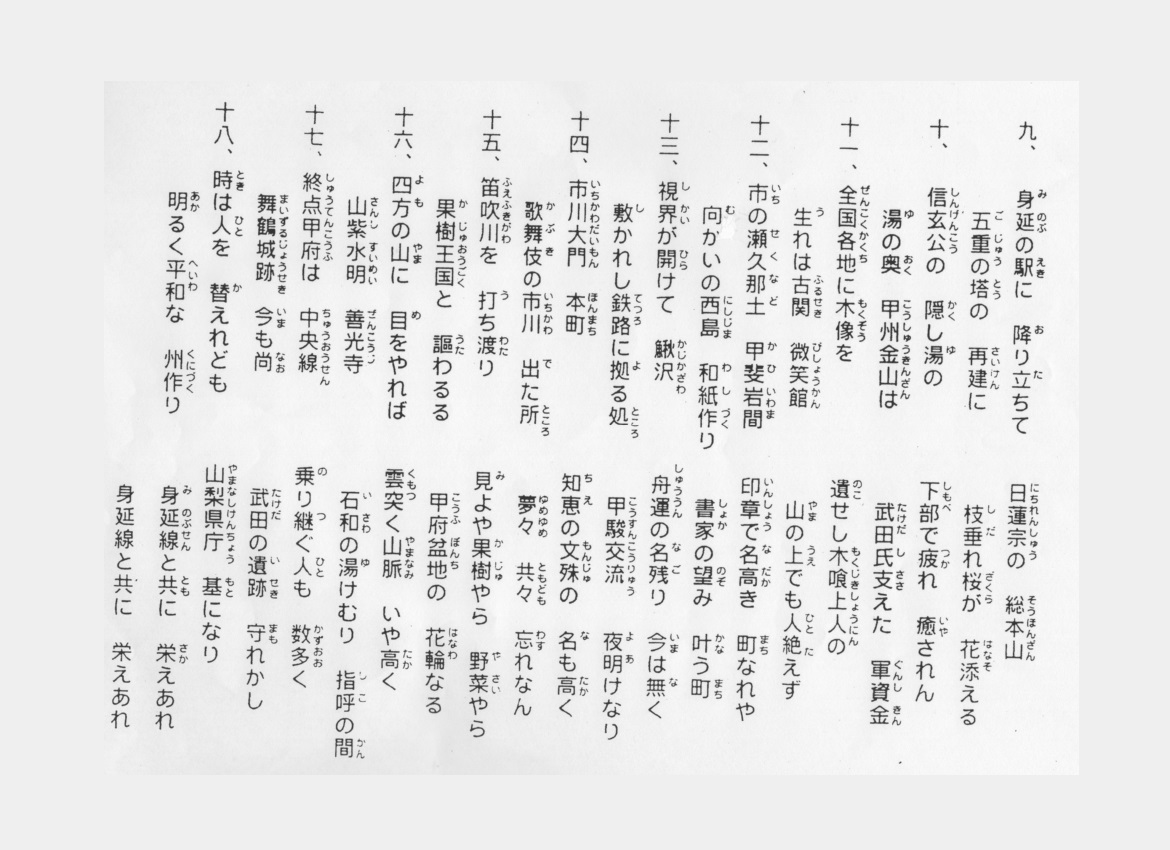 九、 身延の駅に 降り立ちて 日蓮宗の 総本山
五重の塔の 再建に 枝垂れ桜が 花添える
十、 信玄公の 隠し湯の 下部で疲れ 癒されん
湯の奥 甲州金山は 武田氏支えた 軍資金
十一、 全国各地に木像を 遺せし木喰上人の
生れは古関 微笑館 山の上でも人絶えず
十二、 市の瀬久那土 甲斐岩間 印章で名高き 町なれや
向かいの西島 和紙作り 書家の望み 叶う町
十三、 視界が開けて 鰍沢 舟運の名残り 今は無く
敷かれし鉄路に拠る処 甲駿交流 夜明けなり
十四、 市川大門 本町 知恵の文殊の 名も高く
歌舞伎の市川 出た所 夢々 共々 忘れなん
十五、 笛吹川を 打ち渡り 見よや果樹やら 野菜やら
果樹王国と 謳わるる 甲府盆地の 花輪なる
十六、 四方の山に 目をやれば 雲突く山脈 いや高く
山紫水明 善光寺 石和の湯けむり 指呼の間
十七、 終点甲府は 中央線 乗り継ぐ人も 数多く
舞鶴城跡 今も尚 武田の遺跡 守れかし
十八、 時は人を 替えれども 山梨県庁 基になり
明るく平和な 州作り 身延線と共に 栄えあれ
身延線と共に 栄えあれ